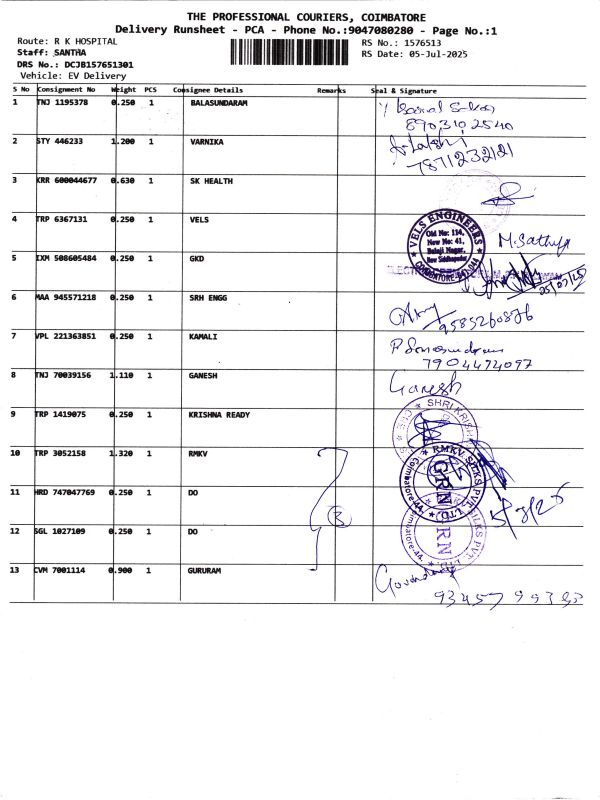 THE PROFESSIONAL COURIERS, COIMBATORE
Delivery Runsheet - PCA - Phone No.:9047080280 - Page No.:1
Route: R K HOSPITAL
Staff: SANTHA
DRS No.: DCJB157651301
Vehicle: EV Delivery
RS No.: 1576513
RS Date: 05-Jul-2025
S No Consignment No Weight PCS Consignee Details Remarks Seal & Signature
1 TNJ 1195378 0.250 1 BALASUNDARAM
8903102540
2 STY 446233 1.200 1 VARNIKA
7871232121
3 KRR 600044677 0.630 1 SK HEALTH
4 TRP 6367131 0.250 1 VELS
VELS ENGINEERS
Old No: 114,
New No: 41,
Balaji Nagar,
New Siddhapudur
COIMBATORE-641 044
M. Sathya
5 IXM 508605484 0.250 1 GKD
6 MAA 945571218 0.250 1 SRH ENGG
9585260876
7 VPL 221363851 0.250 1 KAMALI
7904474097
8 TNJ 70039156 1.110 1 GANESH
Ganesh
9 TRP 1419075 0.250 1 KRISHNA READY
SHRI KRISH
10 TRP 3052158 1.320 1 RMKV
RMKV SILKS PVT. LTD.
GRN
Coimbatore-44.
11 HRD 747047769 0.250 1 DO
12 SGL 1027109 0.250 1 DO
SILKS PVT.
GRN
13 CVM 7001114 0.900 1 GURURAM